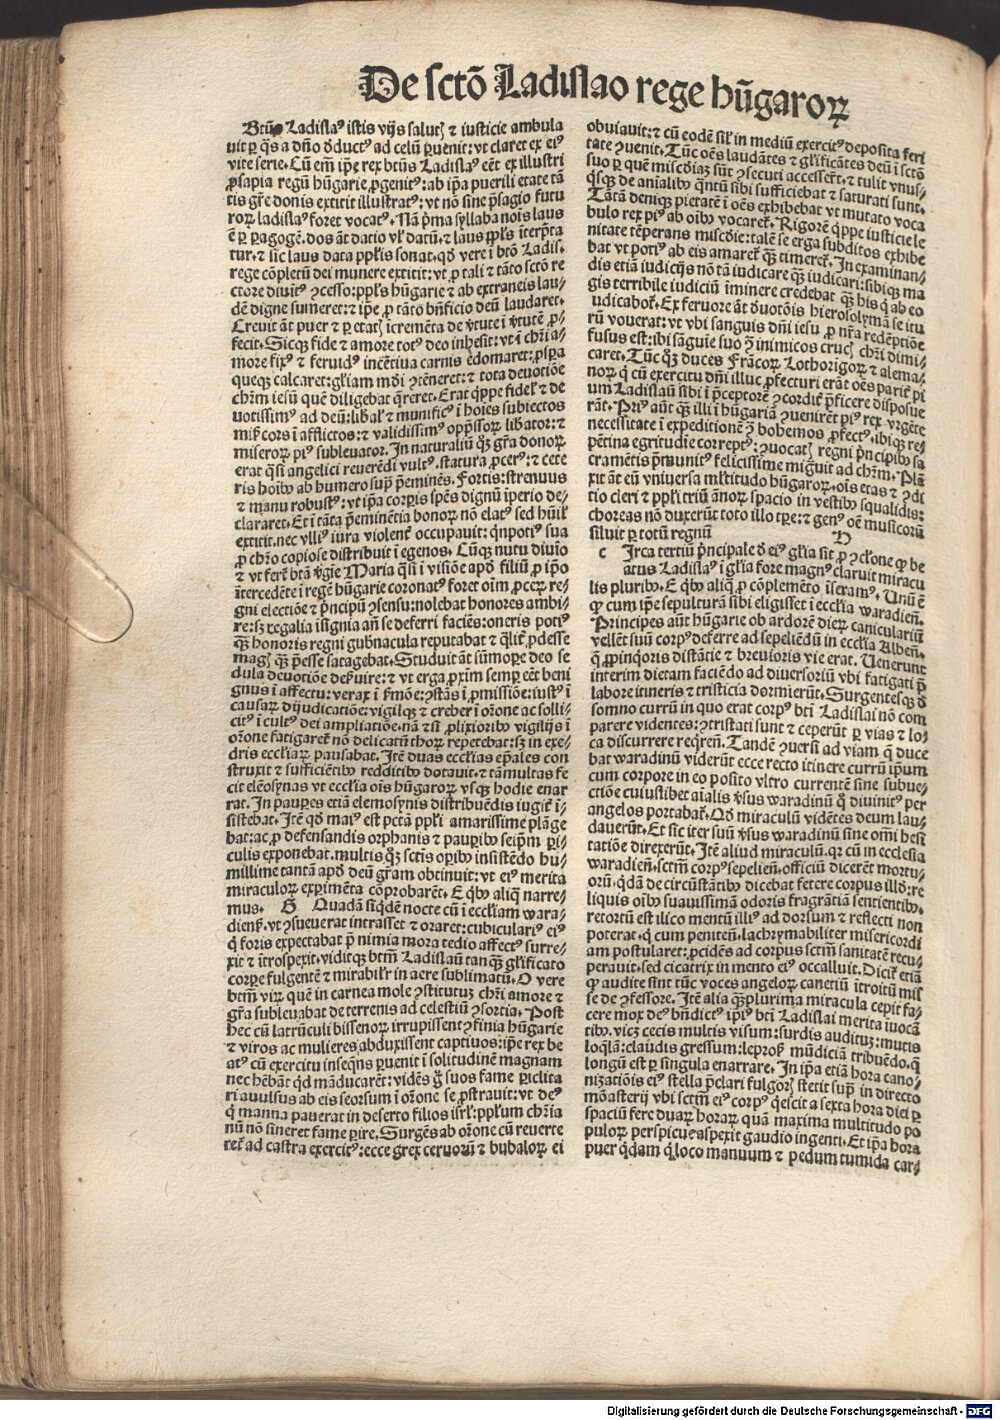 De sctō Ladislao rege hūgaroꝝ
Btūs Ladislaꝰ istis vijs salutꝭ ⁊ iusticie ambula
uit ꝑ qͦs a dño ꝺductꝰ ad celū ꝑuenit: vt claret ex eiꝰ
vite serie. Cū em̄ ip̄e rex btūs Ladislaꝰ eēt ex illustri
ꝓsapia regū hūgarie ꝓgenitꝰ: ab ip̄a puerili etate tā
tis gr̄e donis extitit illustratꝰ: vt nō sine p̄sagio futu
roꝝ ladislaꝰ foret vocatꝰ. Nā p̄ma syllaba nois laus
ē ꝑ paragogē. dos āt datio vl̓ datū. ⁊ laus ꝓpl̓s īterp̄ta
tur. ⁊ sic laus data ppl̓is sonat. qd̓ vere i btō Ladis-
rege cōpletū dei munere extitit: vt ꝓ tali ⁊ tāto sctō re
ctore diuitꝰ ꝯcesso: ppl̓s hūgarie ⁊ ab extraneis lau-
dē digne sumeret: ⁊ ip̄e ꝓ tāto bn̄ficio deū laudaret.
Creuit āt puer ⁊ ꝑ etatꝭ īcremēta de v̓tute ī v̓tutē ꝓ-
fecit. Sicqꝫ fide ⁊ amore totꝰ deo inhesit: vt ī chr̄i a-
more fixꝰ ⁊ feruidꝰ incētiua carnis edomaret: ꝓspa
queqꝫ calcaret: gl̓iam mdi ꝯtēneret: ⁊ tota deuotiōe
chr̄m iesū quē diligebat q̄reret. Erat qͥppe fidel̓ ⁊ de
uotissimꝰ ad deū: libal̓ ⁊ munificꝰ ī hoies subiectos
mi̓cors ī afflictos: ⁊ validissimꝰ opp̄ssoꝝ libator: ⁊
miseroꝝ piꝰ subleuator. In naturaliū qͦꝫ gr̄a donoꝝ
erat qͣsi angelici reuerēdi vultꝰ. statura ꝓcerꝰ: ⁊ cete
ris hoibꝰ ab humero supͣ p̄eminēs. Fortis: strenuus
⁊ manu robustꝰ: vt ip̄a corꝑis sp̄es dignū īperio de-
clararet. Et ī tāta p̄eminētia bonoꝝ nō elatꝰ sed hūil̓
extitit. nec vlliꝰ iura violent̓ occupauit: qnpotiꝰ sua
ꝓ chr̄o copiose distribuit ī egenos. Cūqꝫ nutu diuīo
⁊ vt fert̓ btā v̓gie Maria qͣsi ī visiōe apd̓ filiū ꝓ ip̄o
īntercedēte ī regē hūgarie coronatꝰ foret oīm ꝓceꝝ re-
gni electiōe ⁊ p̄ncipū ꝯsensu: nolebat honores ambi-
re: sꝫ regalia īsignia añ se deferri faciēs: oneris potiꝰ
qͣꝫ honoris regni gub̓nacula reputabat ⁊ qͣlit̓ ꝓdesse
magꝭ qͣꝫ p̄esse satagebat. Studuit āt sūmoꝑe deo se
dula deuotiōe des̓uire: ⁊ vt erga ꝓxim̄ semꝑ eēt beni
gnus ī affectu: verax ī s̓mōe: ꝯstās ī ꝓmissiōe: iustꝰ ī
causaꝝ diiudicatiōe: vigilqꝫ ⁊ creber ī or̄one ac solli-
citꝰ ī cultꝰ dei ampliatiōe. nā ⁊ si ꝓlixioribꝰ vigilijs ī
or̄one fatigaret̓ nō delicatū thoꝝ repetebat: sꝫ in exe-
dris eccl̓iaꝝ pausabat. Itē duas eccl̓ias ep̄ales con
struxit ⁊ sufficiētibꝰ redditibꝰ dotauit. ⁊ tā multas fe
cit eleōsynas vt eccl̓ia ois hūgaroꝝ vsqꝫ hodie enar
rat. In pauꝑes etiā elemosynis distribuēdis iugit̓ ī-
sistebat. Itē qd̓ maiꝰ est pctā ppl̓i amarissime plāge
bat: ac ꝓ defensandis orphanis ⁊ pauꝑibꝰ seip̄m ꝑi-
culis exponebat. multis qͦꝫ sctis oꝑibꝰ insistēdo hu-
millime tantā apd̓ deū gr̄am obtinuit: vt eiꝰ merita
miraculoꝝ exꝑimēta cōprobarēt. E qͥbꝰ aliqͣ narre-
mus. G Quadā siqͥdē nocte cū ī eccl̓iam wara-
dien̄. vt ꝯsueuerat intrasset ⁊ oraret: cubiculariꝰ eiꝰ
qͥ foris expectabat p̄ nimia mora tedio affectꝰ surre-
xit ⁊ ītrospexit. viditqꝫ btm̄ Ladislaū tanqͣꝫ gl̓ificato
corꝑe fulgentē ⁊ mirabil̓r in aere sublimatū. O vere
btm̄ viꝝ quē in carnea mole ꝯstitutuꝫ chr̄i amore ⁊
gr̄a subleuabat de terrenis ad celestiū ꝯsortia. Post
hec cū latrūculi bissenoꝝ irrupissent ꝯfinia hūgarie
⁊ viros ac mulieres abduxissent captiuos: ip̄e rex be
atꝰ cū exercitu inseqn̄s ꝑuenit ī solitudinē magnam
nec hēbāt qd̓ māducarēt: vidēs gͦ suos fame ꝑiclita
ri auulsus ab eis seorsum ī or̄one se ꝓstrauit: vt deꝰ
qͥ manna pauerat in deserto filios isrl̓: ppl̓um chr̄ia
nū nō sineret fame ꝑire. Surgēs ab or̄one cū reuerte
ret̓ ad castra exercitꝰ: ecce grex ceruoꝝ ⁊ bubaloꝝ ei
obuiauit: ⁊ cū eodē sil̓ in mediū exercitꝰ deposita feri
tate ꝯuenit. Tūc oēs laudātes ⁊ gl̓ificātes deū ī sctō
suo ꝑ quē mīscdiaꝫ sūt ꝯsecuti accesserūt. ⁊ tulit vnus-
qͥsqꝫ de aīalibꝰ qͣntū sibi sufficiebat ⁊ saturati sunt.
Tātā deniqꝫ pietatē ī oēs exhibebat vt mutato voca
bulo rex piꝰ ab oibꝰ vocaret̓. Rigorē qͥppe iusticie le
nitate tēperans miscd̓ie: talē se erga subditos exhibe
bat vt potiꝰ ab eis amaret̓ qͣꝫ timeret̓. In examinan-
dis etiā iudicijs nō tā iudicare qͣꝫ iudicari: sibiqꝫ ma
gis terribile iudiciū īminere credebat qͣꝫ his qͥ ab eo
iudicabāt̓. Ex feruore āt deuotōis hierosolymā se itu
rū vouerat: vt vbi sanguis dn̄i iesu ꝓ nr̄a redēptiōe
fusus est: ibi sāguīe suo ꝯͣ inimicos crucꝭ chr̄i dimi-
caret. Tūc qͦꝫ duces Frācoꝝ Lothorīgoꝝ ⁊ alema-
noꝝ qͥ cū exercitu dn̄i illuc ꝓfecturi erāt oēs parit̓ pi
um Ladislaū sibi ī p̄ceptorē ꝯcordit̓ p̄ficere disposue
rāt. Priꝰ aūt qͣꝫ illi ī hūgariā ꝯuenirēt piꝰ rex vrgēte
necessitate ī expeditionē ꝯͣ bohemos ꝓfectꝰ. ibiqꝫ re-
pētina egritudīe correptꝰ: ꝯuocatꝭ regni p̄ncipibꝰ sa
cramētis p̄munitꝰ felicissime migͣuit ad chr̄m. Plā-
xit āt eū vniuersa ml̓titudo hūgaroꝝ. ois etas ⁊ ꝯdi
tio cleri ⁊ ppl̓i triū ānoꝝ spacio in vestibꝰ squalidis:
choreas nō duxerūt toto illo tꝑe: ⁊ genꝰ oē musicoꝝ
siluit ꝑ totū regnū. H
c Irca tertiū p̄ncipale ꝺ eiꝰ gl̓ia sit ꝓ ꝯclōne qꝫ be
atus Ladislaꝰ ī gl̓ia fore magnꝰ claruit miracu
lis pluribꝰ. E qͥbꝰ aliqͣ ꝓ cōplemēto īseramꝰ. Unū ē
qꝫ cum ip̄e sepulturā sibi eligisset ī eccl̓ia waradien̄.
Principes aūt hūgarie ob ardorē dieꝝ caniculariū
vellēt suū corpꝰ deferre ad sepeliēdū in eccl̓ia Alben̄.
qͥ ꝓpinqͦris distātie ⁊ breuioris vie erat. Uenerunt
interim dietam faciēdo ad diuersoriū vbi fatigati p̄
labore itineris ⁊ tristicia dormierūt. Surgentesqꝫ ꝺ
somno currū in quo erat corpꝰ bti Ladislai nō com
parere videntes: ꝯtristati sunt ⁊ ceperūt ꝑ vias ⁊ lo-
ca discurrere reqͥren̄. Tandē ꝯuersi ad viam qͥ duce
bat waradinū viderūt ecce recto itinere currū ip̄um
cum corpore in eo posito vltro currentē sine subue-
ctiōe cuiuslibet aīalis v̓sus waradinū qͥ diuinitꝰ per
angelos portabat̓. Qd̓ miraculū vidētes deum lau-
dauerūt. Et sic iter suū v̓sus waradinū sine om̄i hesi
tatiōe direxerūt. Itē aliud miraculū. qꝛ cū in ecclesia
waradien̄. sctm̄ corpꝰ sepelien̄. officiū dicerēt mortu-
orū. qͥdā de circūstātibꝰ dicebat fetere corpus illd̓: re
liquis oibꝰ suauissimā odoris fragrātiā sentientibꝰ.
retortū est ilico mentū illiꝰ ad dorsum ⁊ reflecti non
poterat. qͥ cum peniten̄. lachrymabiliter misericordi
am postularet: ꝓcidēs ad corpus sctm̄ sanitatē recu-
perauit. sed cicatrix in mento eiꝰ occalluit. Dicit̓ etiā
qꝫ audite sint tūc voces angeloꝝ canetiū ītroitū mis
se de ꝯfessore. Itē alia qͣꝫplurima miracula cepit fa-
cere mox deꝰ bn̄dictꝰ ip̄iꝰ bti Ladislai merita iuocā
tibꝰ. vicꝫ cecis multis visum: surdis audituꝫ: mutis
loqͣlā: claudis gressum: leprosꝭ mūdiciā tribuēdo. qͣ
longū est ꝑ singula enarrare. In ip̄a etiā hora cano-
nizatiōis eiꝰ stella p̄clari fulgorꝭ stetit supͣ in directo
monasterij vbi sctm̄ eiꝰ corpꝰ qͥescit a sexta hora diei ꝑ
spaciū fere duaꝝ horaꝝ quā maxima multitudo po
puloꝝ perspicue aspexit gaudio ingenti. Et ip̄a hora
puer qͥdam qͥ loco manuum ⁊ pedum tumida car-
Digitalisierung gefördert durch die Deutsche Forschungsgemeinschaft - DFG